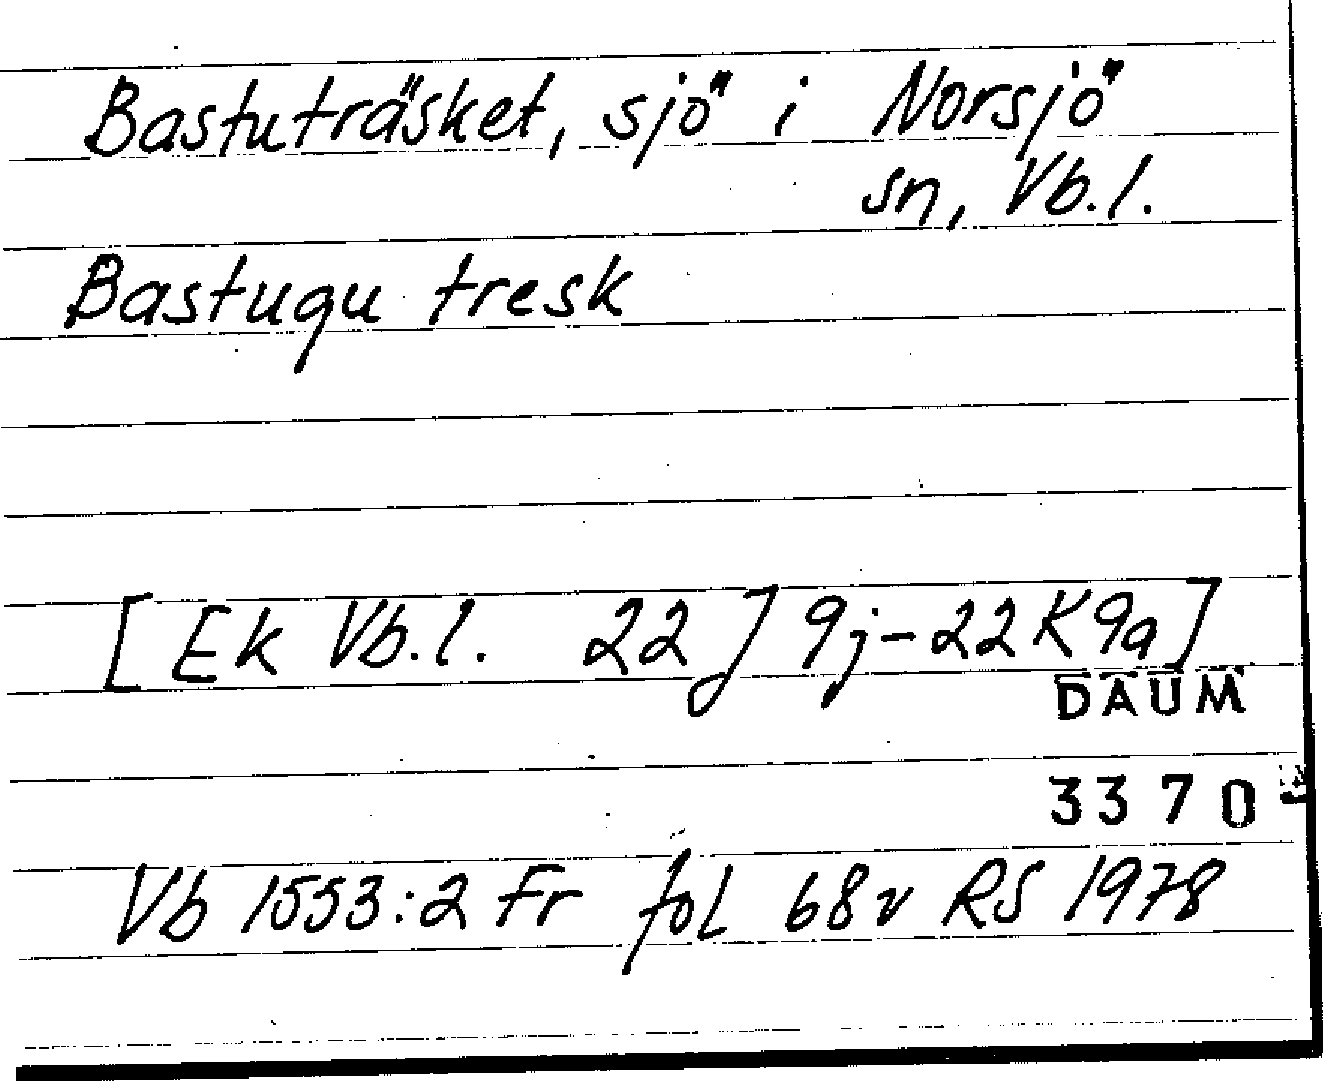 Bastuträsket, sjö i Norsjö
sn, Vb.l.
Bastugu tresk
[Ek Vb.l. 22 J 9j-22 K 9a]
DAUM
3370
Vb 1553:2 Fr fol 68v RS 1978